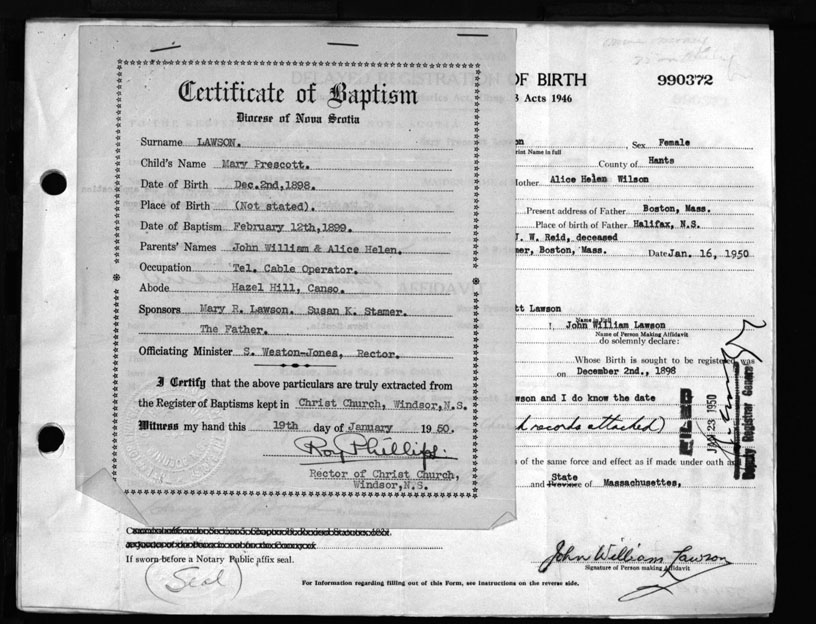 Certificate of Baptism
Diocese of Nova Scotia
Surname LAWSON.
Child's Name Mary Prescott.
Date of Birth Dec.2nd,1898.
Place of Birth (Not stated).
Date of Baptism February 12th,1899.
Parents' Names John William & Alice Helen.
Occupation Tel. Cable Operator.
Abode Hazel Hill, Canso.
Sponsors Mary R. Lawson. Susan K. Stamer.
The Father.
Officiating Minister S. Weston-Jones, Rector.
I Certify that the above particulars are truly extracted from
the Register of Baptisms kept in Christ Church, Windsor,N.S.
Witness my hand this 19th day of January 1950.
Roy Phillips.
Rector of Christ Church,
Windsor,N.S.
OF BIRTH 990372
Acts 1946
on Sex Female
rint Name in full
County of Hants
Mother Alice Helen Wilson
Present address of Father Boston, Mass.
Place of birth of Father Halifax, N.S.
J. W. Reid, deceased
mer, Boston, Mass. Date Jan. 16, 1950
tt Lawson
Name in Full
I, John William Lawson
Name of Person Making Affidavit
do solemnly declare:
Whose Birth is sought to be registered was
on December 2nd., 1898
wson and I do know the date
records attached)
FILED
JAN 23 1950
Deputy Registrar General
of the same force and effect as if made under oath
and State Province of Massachusettes,
If sworn before a Notary Public affix seal.
(Seal)
John William Lawson
Signature of Person making Affidavit
For Information regarding filling out of this Form, see Instructions on the reverse side.